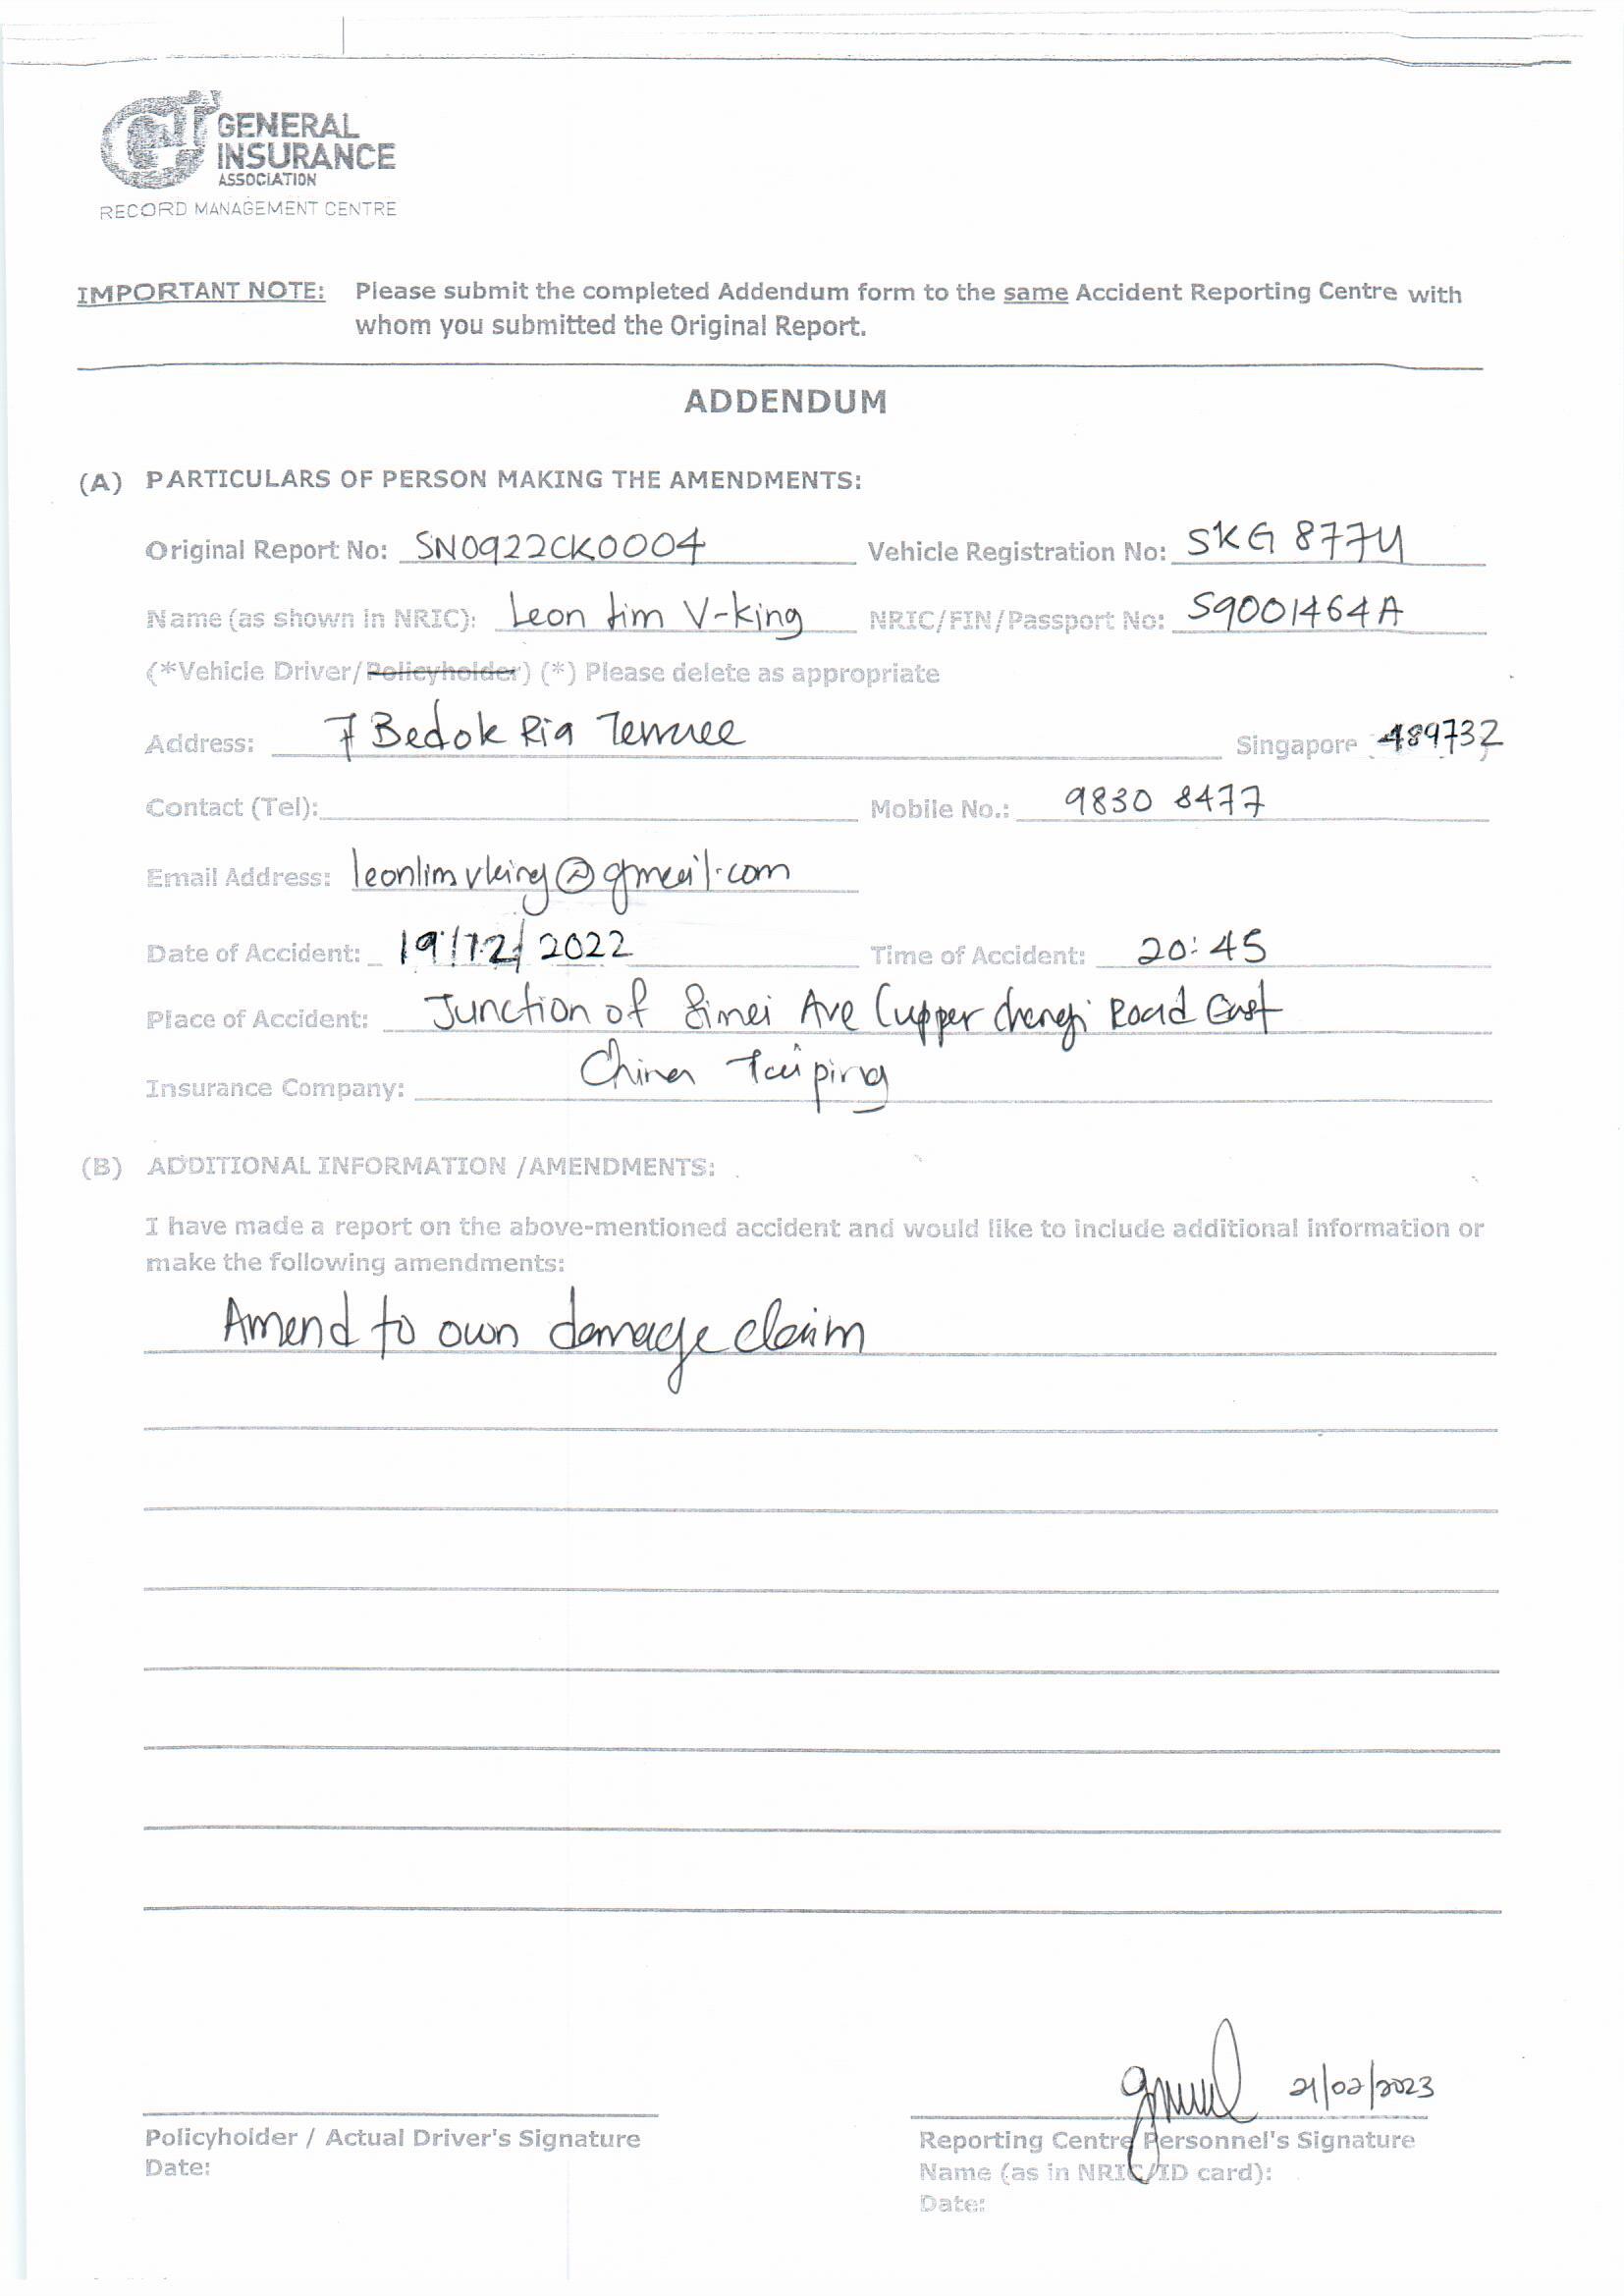 GENERAL
INSURANCE
ASSOCIATION
RECORD MANAGEMENT CENTRE
IMPORTANT NOTE: Please submit the completed Addendum form to the same Accident Reporting Centre with
whom you submitted the Original Report.
ADDENDUM
(A) PARTICULARS OF PERSON MAKING THE AMENDMENTS:
Original Report No: SN0922CK0004 Vehicle Registration No: SKG 877U
Name (as shown in NRIC): Leon Lim V-king NRIC/FIN/Passport No: S9001464A
(*Vehicle Driver/Policyholder) (*) Please delete as appropriate
Address: 7 Bedok Ria Terrace Singapore 489732
Contact (Tel): Mobile No.: 9830 8477
Email Address: leonlimvking@gmail.com
Date of Accident: 19/12/2022 Time of Accident: 20:45
Place of Accident: Junction of Simei Ave (upper changi Road East
Insurance Company: China Taiping
(B) ADDITIONAL INFORMATION /AMENDMENTS:
I have made a report on the above-mentioned accident and would like to include additional information or
make the following amendments:
Amend to own damage claim
21/02/2023
Policyholder / Actual Driver's Signature Reporting Centre Personnel's Signature
Date: Name (as in NRIC/ID card):
Date: